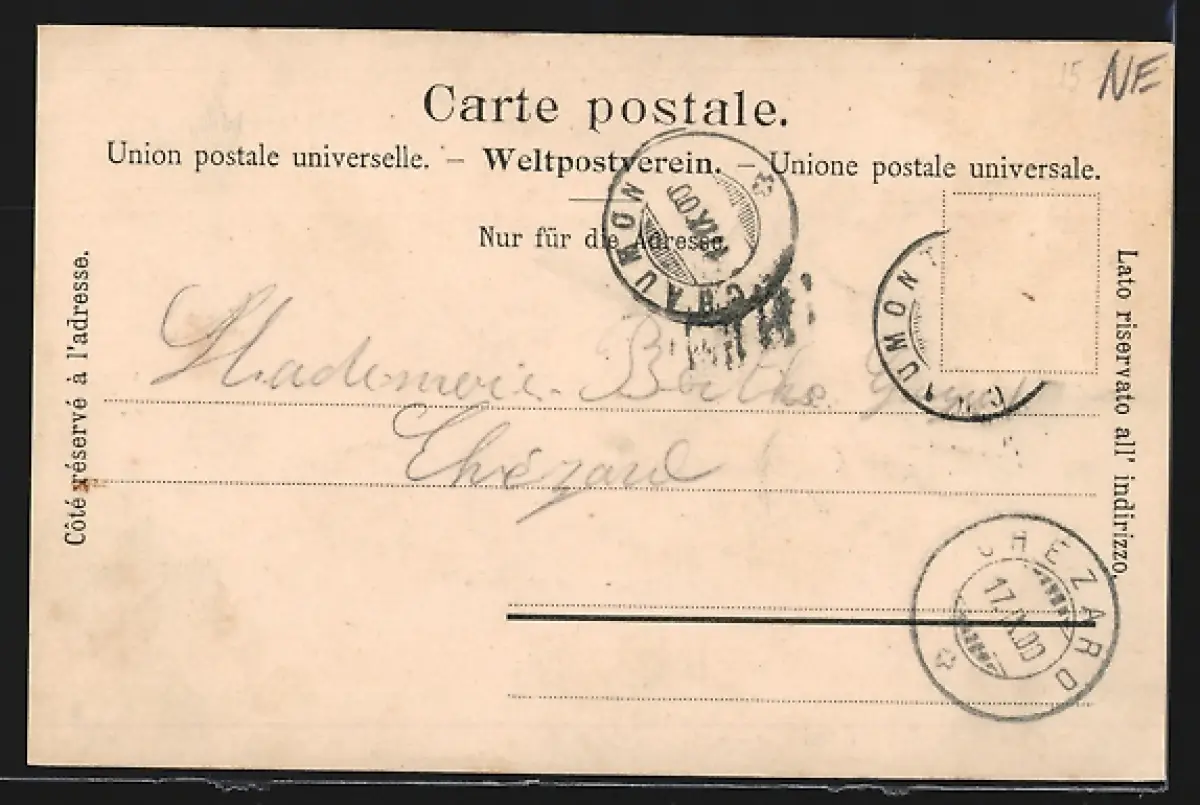 15 NE
Carte postale.
Union postale universelle. – Weltpostverein. – Unione postale universale.
Nur für die Adresse.
CHAUMONT
IX.00
CHAUMONT
Côté réservé à l'adresse.
Lato riservato all' indirizzo.
Mademoi. Berthe
Chézard
CHEZARD
17.IX.00